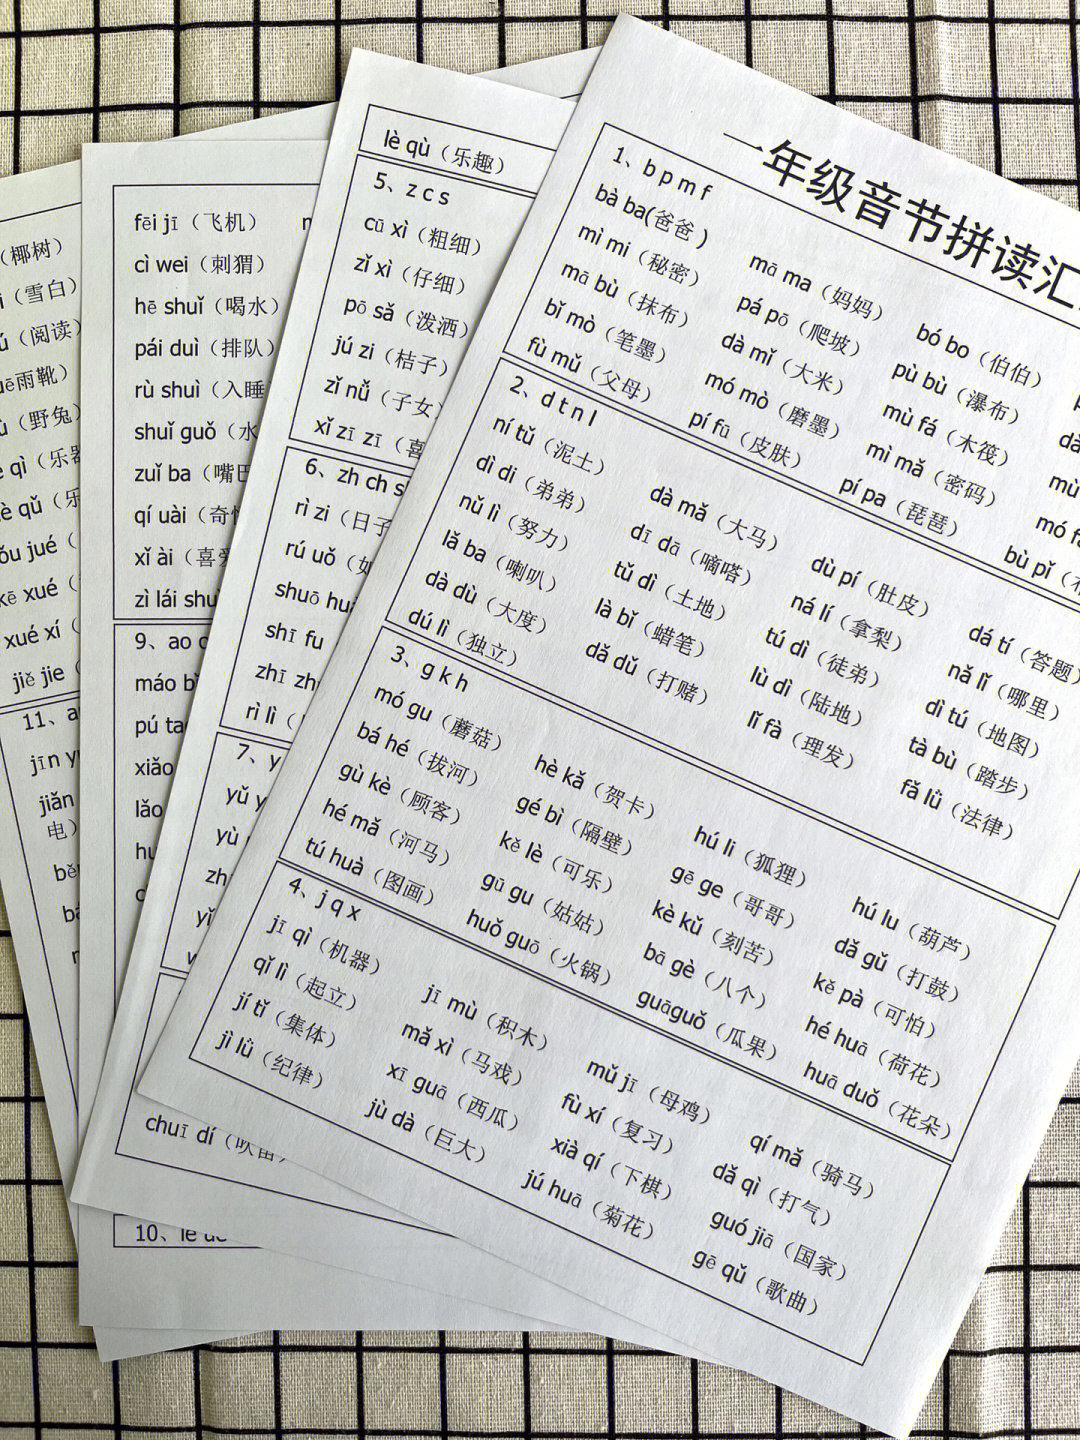 一年级音节拼读汇
1、b p m f
bà ba(爸爸 ) mā ma（妈妈） bó bo（伯伯）
mì mi（秘密） pá pō（爬坡） pù bù（瀑布）
mā bù（抹布） dà mǐ（大米） mù fá（木筏）
bǐ mò（笔墨） mó mò（磨墨） mì mǎ（密码）
fù mǔ（父母） pí fū（皮肤） pí pa（琵琶） bù pǐ
2、d t n l
ní tǔ（泥土） dà mǎ（大马） dù pí（肚皮） dá tí（答题）
dì di（弟弟） dī dā（嘀嗒） ná lí（拿梨） nǎ lǐ（哪里）
nǔ lì（努力） tǔ dì（土地） tú dì（徒弟） dì tú（地图）
lǎ ba（喇叭） là bǐ（蜡笔） lù dì（陆地） tà bù（踏步）
dà dù（大度） dǎ dǔ（打赌） lǐ fà（理发） fǎ lǜ（法律）
dú lì（独立）
3、g k h
mó gu（蘑菇） hè kǎ（贺卡） hú li（狐狸） hú lu（葫芦）
bá hé（拔河） gé bì（隔壁） gē ge（哥哥） dǎ gǔ（打鼓）
gù kè（顾客） kě lè（可乐） kè kǔ（刻苦） kě pà（可怕）
hé mǎ（河马） gū gu（姑姑） bā gè（八个） hé huā（荷花）
tú huà（图画） huǒ guō（火锅） guāguǒ（瓜果） huā duǒ（花朵）
4、j q x
jī qì（机器） jī mù（积木） mǔ jī（母鸡） qí mǎ（骑马）
qǐ lì（起立） mǎ xì（马戏） fù xí（复习） dǎ qì（打气）
jí tǐ（集体） xī guā（西瓜） xià qí（下棋） guó jiā（国家）
jì lǜ（纪律） jù dà（巨大） jú huā（菊花） gē qǔ（歌曲）
lè qù（乐趣）
5、z c s
cū xì（粗细）
zǐ xì（仔细）
pō sǎ（泼洒）
jú zi（桔子）
zǐ nǚ（子女）
xǐ zī zī（喜
6、zh ch s
rì zi（日子
rú uǒ（如
shuō huà
shī fu
zhī
rì lì（
7、y
yǔ
yù
chuī dí（吹笛）
fēi jī（飞机）
cì wei（刺猬）
hē shuǐ（喝水）
pái duì（排队）
rù shuì（入睡
shuǐ guǒ（水
zuǐ ba（嘴巴
qí uài（奇怪
xǐ ài（喜爱
zì lái shuǐ
9、ao
máo
pú
xiǎo
lǎo
10、ie üe
（椰树）
（雪白）
（阅读）
雨靴）
（野兔）
qì（乐器
qǔ（乐
jué（
kē xué（
xué xí（
jiě jie（
11、a
jīn
jiǎn
电）